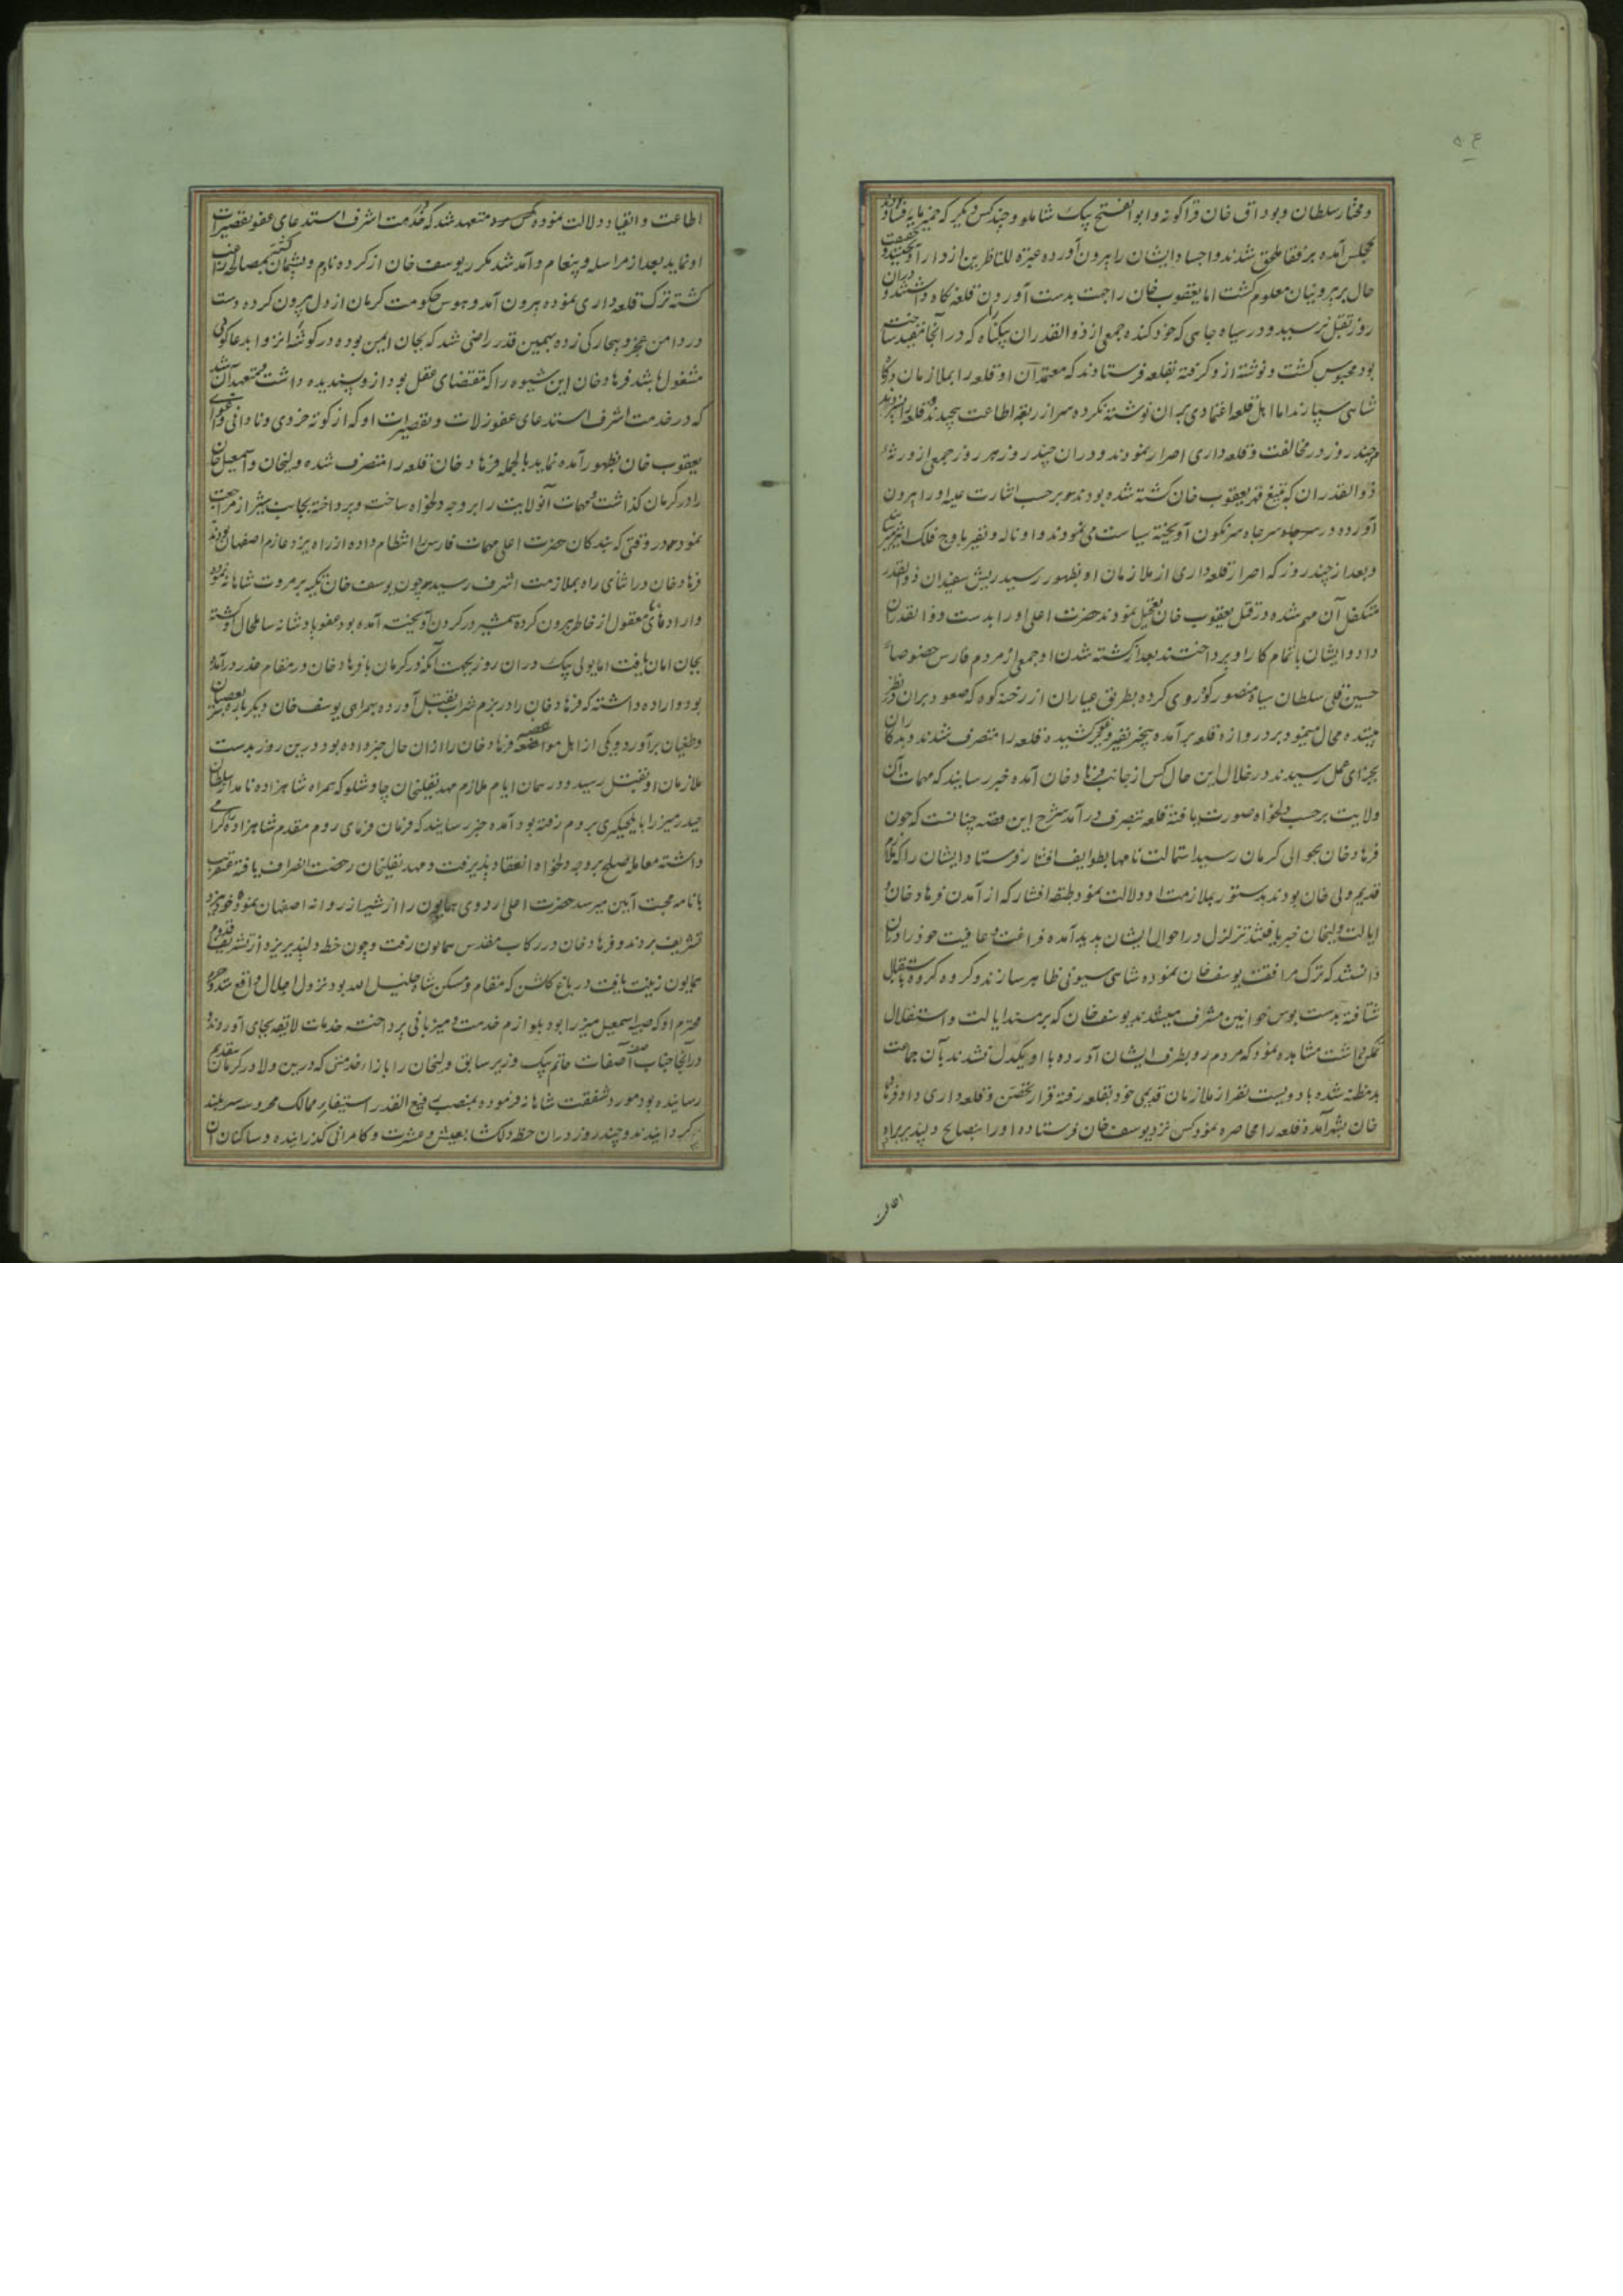 و مختار سلطان و بوداق خان قراگونه و ابوالفتح بیک شاملو و چند کس دیگر که خمیرمایه فساد
بمجلس آمده برفقا ملحق شدند و اجساد ایشان را بیرون آورده عبرة للناظرین از دار آویختند و حقیقت
حال بر بیرونیان معلوم گشت اما یعقوب خان را جهت بدست آوردن قلعه نگاه داشتند و دران
روز بقتل نرسید و در سیاه چاهی که خود کنده جمعی از ذوالقدران بیگناه که در آنجا مقید ساخت
بود محبوس گشت و نوشته ازو گرفته بقلعه فرستادند که معتمدان او قلعه را بملازمان درگاه
شاهی سپارند اما اهل قلعه اعتمادی بران نوشته نکرده سر از ربقه اطاعت پیچیدند و قلعه
چند روز در مخالفت و قلعه داری اصرار نمودند و دران چند روز هر روز جمعی از ورثه
ذوالقدران که بتیغ قهر یعقوب خان کشته شده بودند بر حسب اشارت علیه او را بیرون
آورده در سر چاه سرنگون آویخته سیاست می نمودند و او ناله و نفیر باوج فلک اثیر
و بعد از چند روز که اصرار قلعه داری از ملازمان او بظهور رسید ریش سفیدان ذوالقدر
متکفل آن مهم شده در قتل یعقوب خان تعجیل نمودند حضرت اعلی او را بدست ذوالقدران
داد و ایشان باتمام کار او پرداختند بعد از کشته شدن او جمعی از مردم فارس خصوصا
حسین قلی سلطان سیاه منصور کوروی کرده بطریق عیاران از رخنه کوه که صعود بران در نظر
بیننده محال مینمود بر دروازه قلعه برآمده نفیر کشیده قلعه را متصرف شدند و بدکاران
بجزای عمل رسیدند در خلال این حال کس از جانب فرهاد خان آمده خبر رسانیدند که مهمات آن
ولایت برحسب دلخواه صورت یافته قلعه بتصرف درآمد شرح این قصه چنانست که چون
فرهاد خان بحوالی کرمان رسید استمالت نامها بطوایف افشار فرستاد ایشان را که ملازم
قدیم ولی خان بودند بدستور بملازمت او دلالت نمود طبقه افشار که از آمدن فرهاد خان و
ایالت ولیخان خبر یافتند تزلزل در احوال ایشان پدید آمده فراغت و عافیت خود را دران
دانستند که ترک مرافقت یوسف خان نموده شاهی سیونی ظاهر سازند و گروه گروه باستقبال
شتافته بدست بوس خوانین مشرف میشدند یوسف خان که بر مسند ایالت و استقلال
تمکن داشت مشاهده نمود که مردم رو بطرف ایشان آورده با او یکدل نشدند بآن جماعت
بدمظنه شده با دویست نفر از ملازمان قدیمی خود بقلعه رفته قرار تحصن و قلعه داری داد و فرهاد
خان بشهر آمده قلعه را محاصره نمود و کس نزد یوسف خان فرستاده او را بنصایح دلپذیر براه
اطاعت
اطاعت و انقیاد دلالت نموده متعهد شد که در خدمت اشرف استدعای عفو تقصیرات
او نماید بعد از مراسله و پیغام و آمد شد مکرر یوسف خان از کرده نادم و پشیمان گشته بمصالحه راغب
گشته ترک قلعه داری نموده بیرون آمد و هوس حکومت کرمان از دل بیرون کرده دست
در دامن عجز و بیچارگی زده بهمین قدر راضی شد که بجان ایمن بوده در گوشه انزوا بدعاگویی
مشغول باشد فرهاد خان این شیوه را که مقتضای عقل بود ازو پسندیده داشت و متعهد آن شد
که در خدمت اشرف استدعای عفو زلات و تقصیرات او که از کوته خردی و نادانی و اغوای
یعقوب خان بظهور آمده نماید بالجمله فرهاد خان قلعه را متصرف شده ولیخان و اسمعیل خان
را در کرمان گذاشت و مهمات آنولایت را بر وجه دلخواه ساخت و پرداخته بجانب شیراز مراجعت
نمود در وقتی که بندگان حضرت اعلی مهمات فارس را انتظام داده از راه یزد عازم اصفهان بودند
فرهاد خان در اثنای راه بملازمت اشرف رسید چون یوسف خان تکیه بر مروت شاهانه نموده
و ارادهای نامعقول از خاطر بیرون کرده شمشیر در گردن آویخته آمده بود عفو پادشاهانه شامل حال او گشته
بجان امان یافت اما یولی بیک دران روز بجهت آنکه در کرمان با فرهاد خان در مقام غدر درآمده
بود و اراده داشته که فرهاد خان را در بزم شراب بقتل آورده بهمراهی یوسف خان دیگر باره سر بعصیان
و طغیان برآورد و یکی از اهل مواضعه فرهاد خان را ازان حال خبر داده بود درین روز بدست
ملازمان او بقتل رسید و در همان ایام ملازم مهدیقلیخان چاوشلو که همراه شاهزاده نامدار سلطان
حیدر میرزا بایلچیگری بروم رفته بود آمده خبر رسانید که فرمان فرمای روم مقدم شاهزاده را گرامی
داشته معامله صلح بر وجه دلخواه انعقاد پذیرفت و مهدیقلیخان رخصت انصراف یافته عنقریب
با نامه محبت آیین میرسد حضرت اعلی اردوی همایون را از شیراز روانه اصفهان نموده خود بیزد
تشریف بردند و فرهاد خان در رکاب مقدس همایون رفت و چون خطه دلپذیر یزد از تشریف قدوم
همایون زینت یافت در باغ گلشن که مقام و مسکن شاه خلیل الله بود نزول اجلال واقع شد و حرم
محترم او که صبیه اسمعیل میرزا بود بلوازم خدمت و میزبانی پرداخته خدمات لایقه بجای آوردند و
در آنجا جناب آصف صفات حاتم بیک وزیر سابق ولیخان را بازاء خدمتی که درین ولا در کرمان بتقدیم
رسانیده بود مورد شفقت شاهانه فرموده بمنصب رفیع القدر استیفای ممالک محروسه سربلند
گردانیدند و چند روز دران خطه دلگشا بعیش و عشرت و کامرانی گذرانیده و ساکنان آن